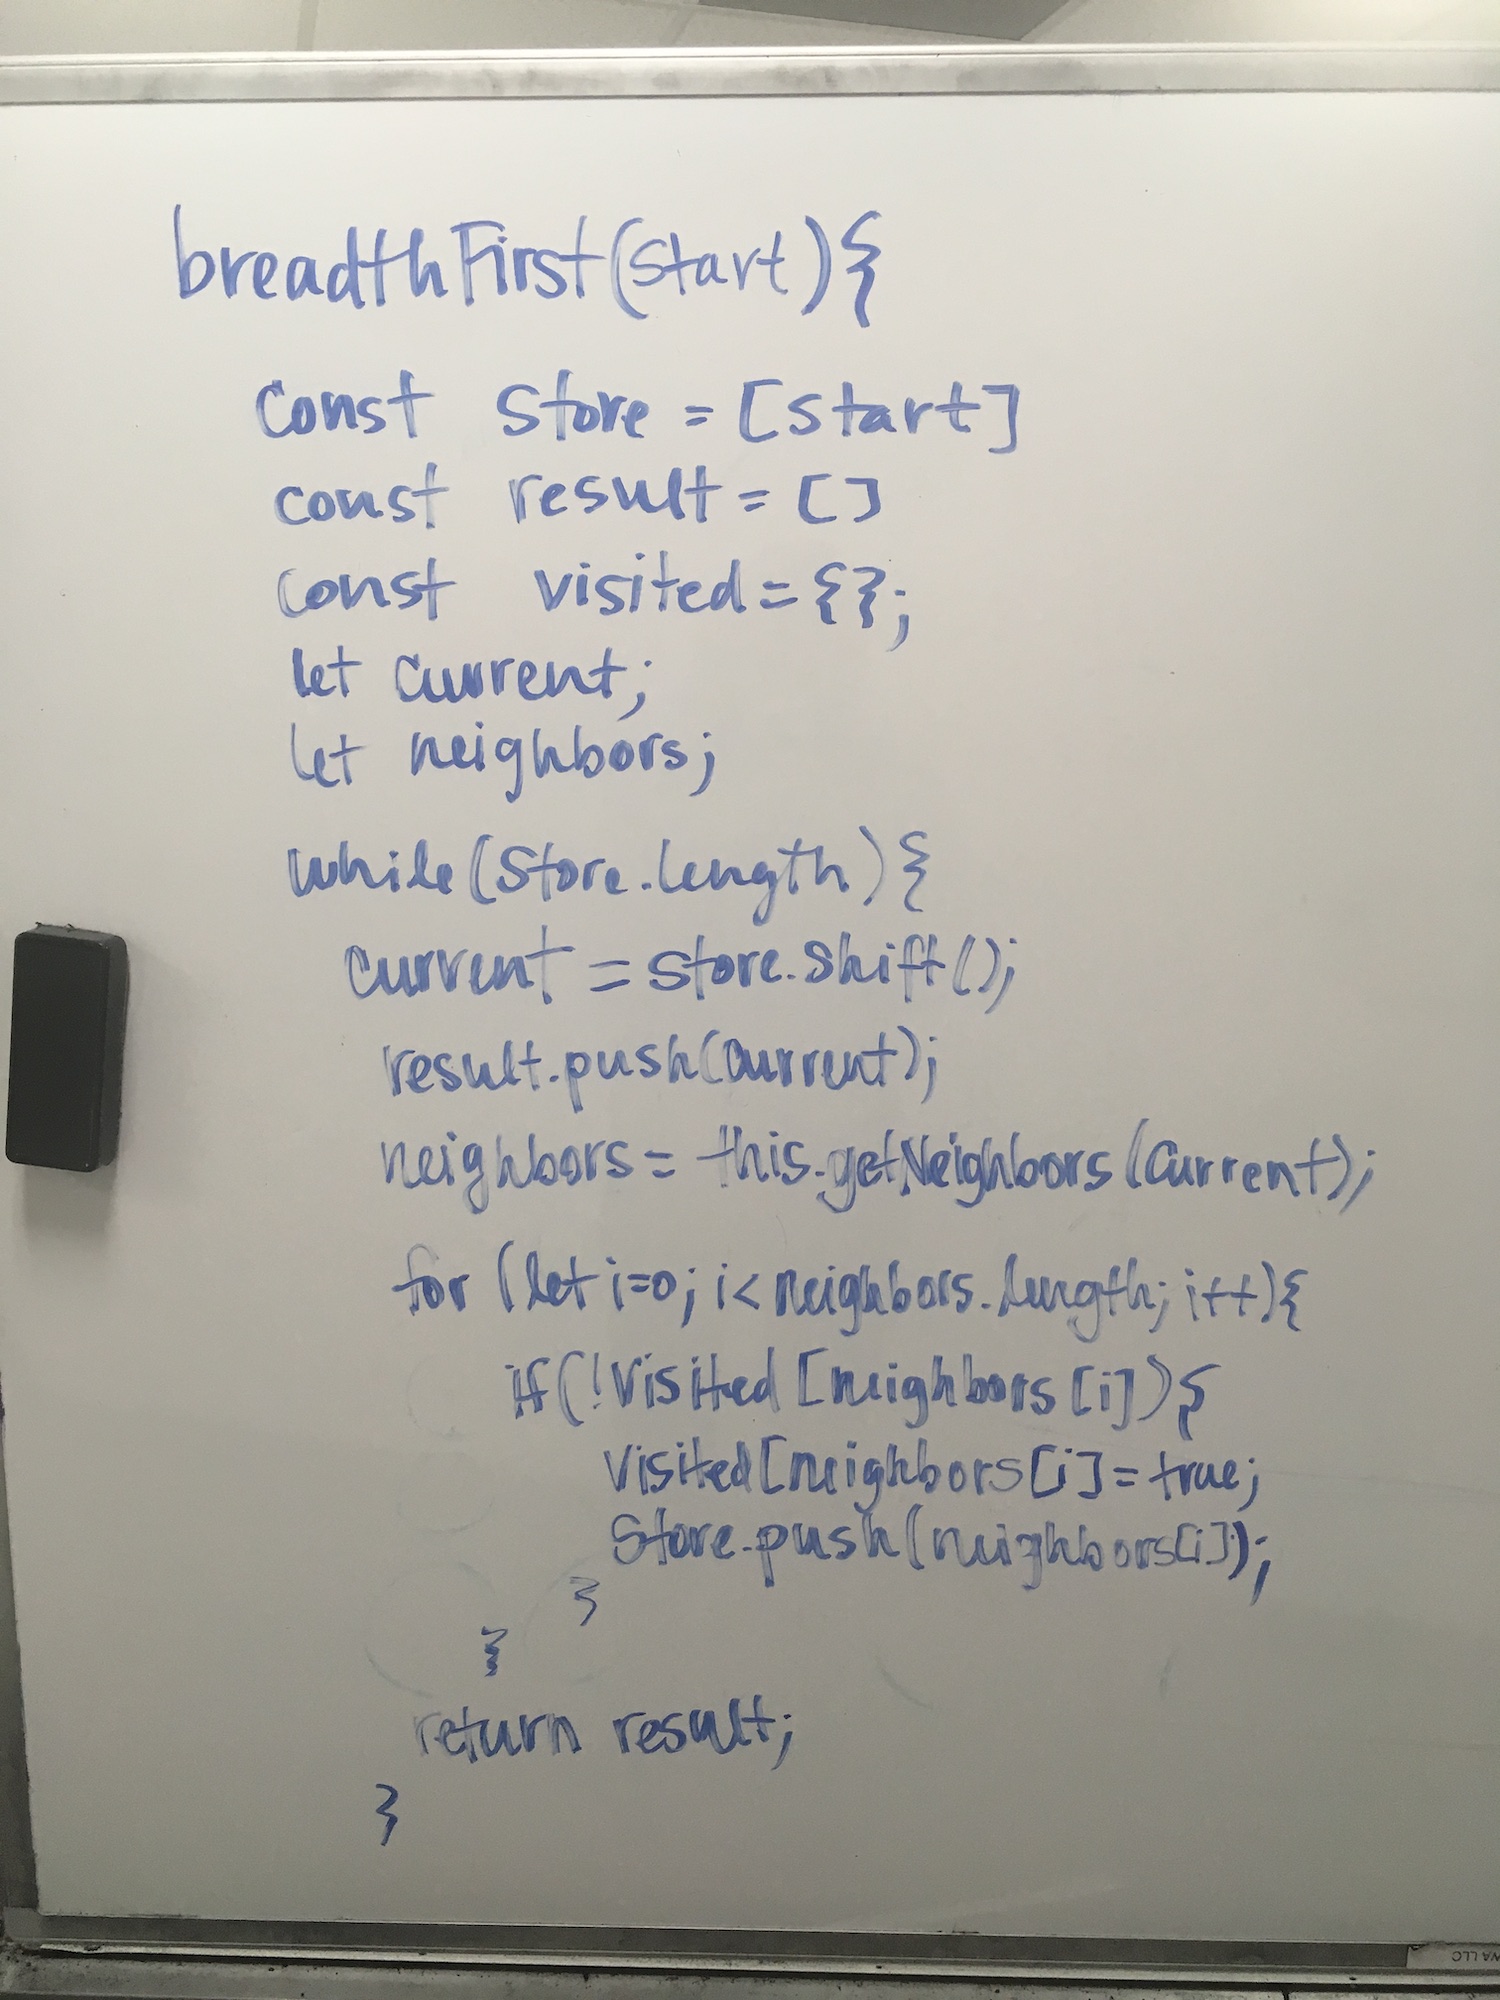 breadthFirst(start){
const store = [start]
const result = []
const visited = {};
let current;
let neighbors;
while(store.length){
current = store.shift();
result.push(current);
neighbors = this.getNeighbors(current);
for (let i=0; i<neighbors.length; i++){
if(!visited[neighbors[i]){
visited[neighbors[i]=true;
store.push(neighbors[i]);
}
}
return result;
}
WA LLC